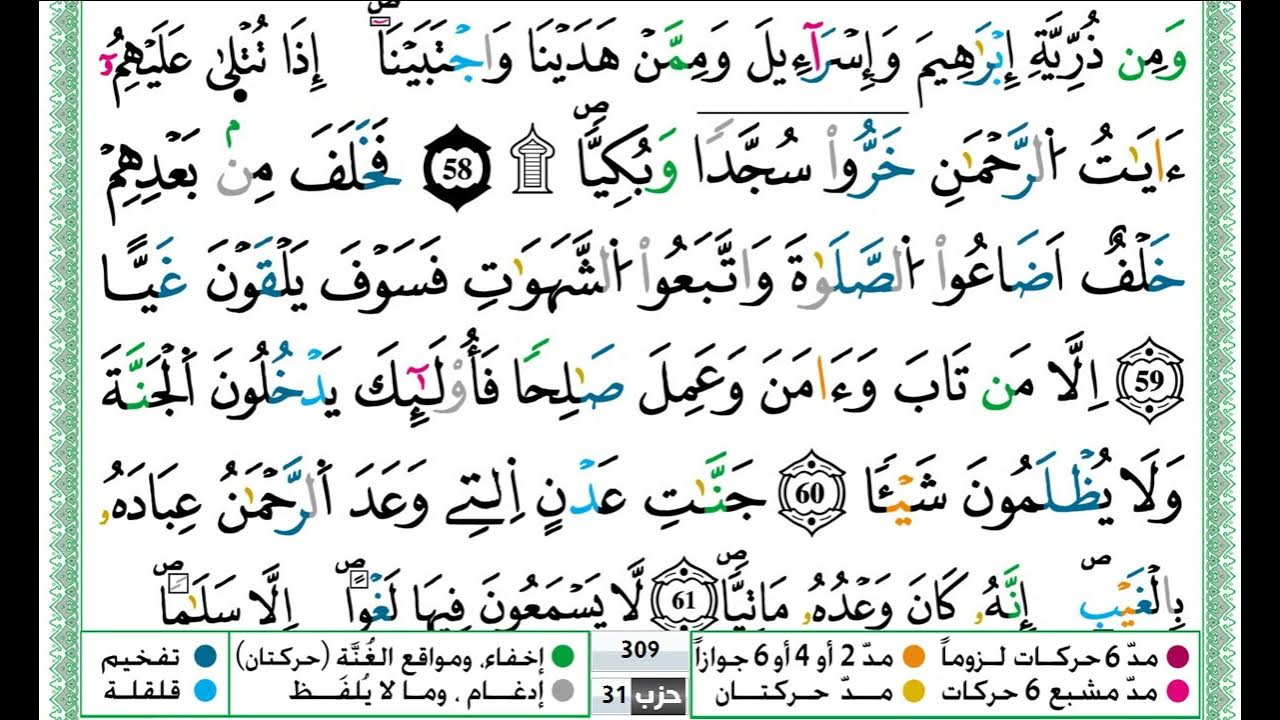 وَمِن ذُرِّيَّةِ إِبْرَٰهِيمَ وَإِسْرَآءِيلَ وَمِمَّنْ هَدَيْنَا وَاجْتَبَيْنَآ ۖ إِذَا تُتْلَىٰ عَلَيْهِمُۥٓ
ءَايَٰتُ اُ۬لرَّحْمَٰنِ خَرُّواْ سُجَّداً وَبُكِيّاًّ ۩ 58 فَخَلَفَ مِنۢ بَعْدِهِمْ
خَلْفٌ اَضَاعُواْ اُ۬لصَّلَوٰةَ وَاتَّبَعُواْ اُ۬لشَّهَوَٰتِ فَسَوْفَ يَلْقَوْنَ غَيّاً
59 اِلَّا مَن تَابَ وَءَامَنَ وَعَمِلَ صَٰلِحاً فَأُوْلَٰٓئِكَ يَدْخُلُونَ اَ۬لْجَنَّةَ
وَلَا يُظْلَمُونَ شَيْـٔاً 60 جَنَّٰتِ عَدْنٍ اِ۬لتِے وَعَدَ اَ۬لرَّحْمَٰنُ عِبَادَهُۥ
بِالْغَيْبِ ۖ إِنَّهُۥ كَانَ وَعْدُهُۥ مَاتِيّاً ۖ 61 لَّا يَسْمَعُونَ فِيهَا لَغْواً اِلَّا سَلَٰماً
مدّ 6 حركات لـزوماً
مدّ 2 أو 4 أو 6 جوازاً
مدّ مشبع 6 حركات
مـدّ حـركـتـان
309
حزب 31
إخفاء، ومواقع الغُنَّة (حركتان)
إدغـام ، وما لا يُلفَـظ
تفخيم
قلقلة